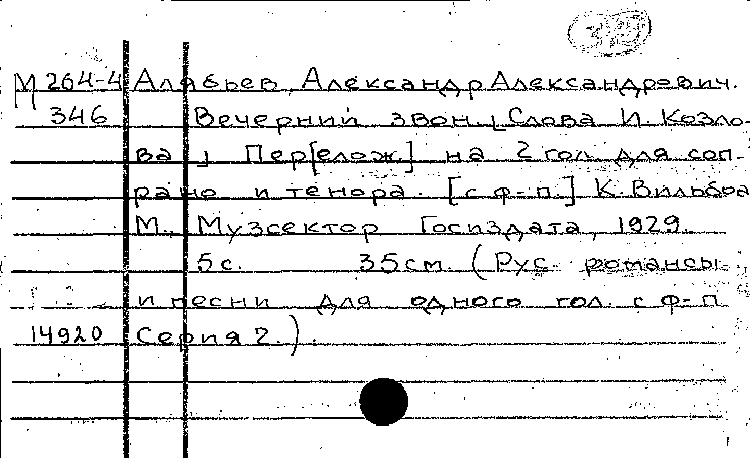 М 264-4 Алябьев, Александр Александрович.
346 Вечерний звон. [Слова И. Козло-
ва] Пер[елож.] на 2 гол. для соп-
рано и тенора. [с ф-п.] К. Вильбоа
М., Музсектор Госиздата, 1929.
5 с. 35 см. (Рус. романсы
и песни для одного гол. с ф-п
14920 Серия 2.).